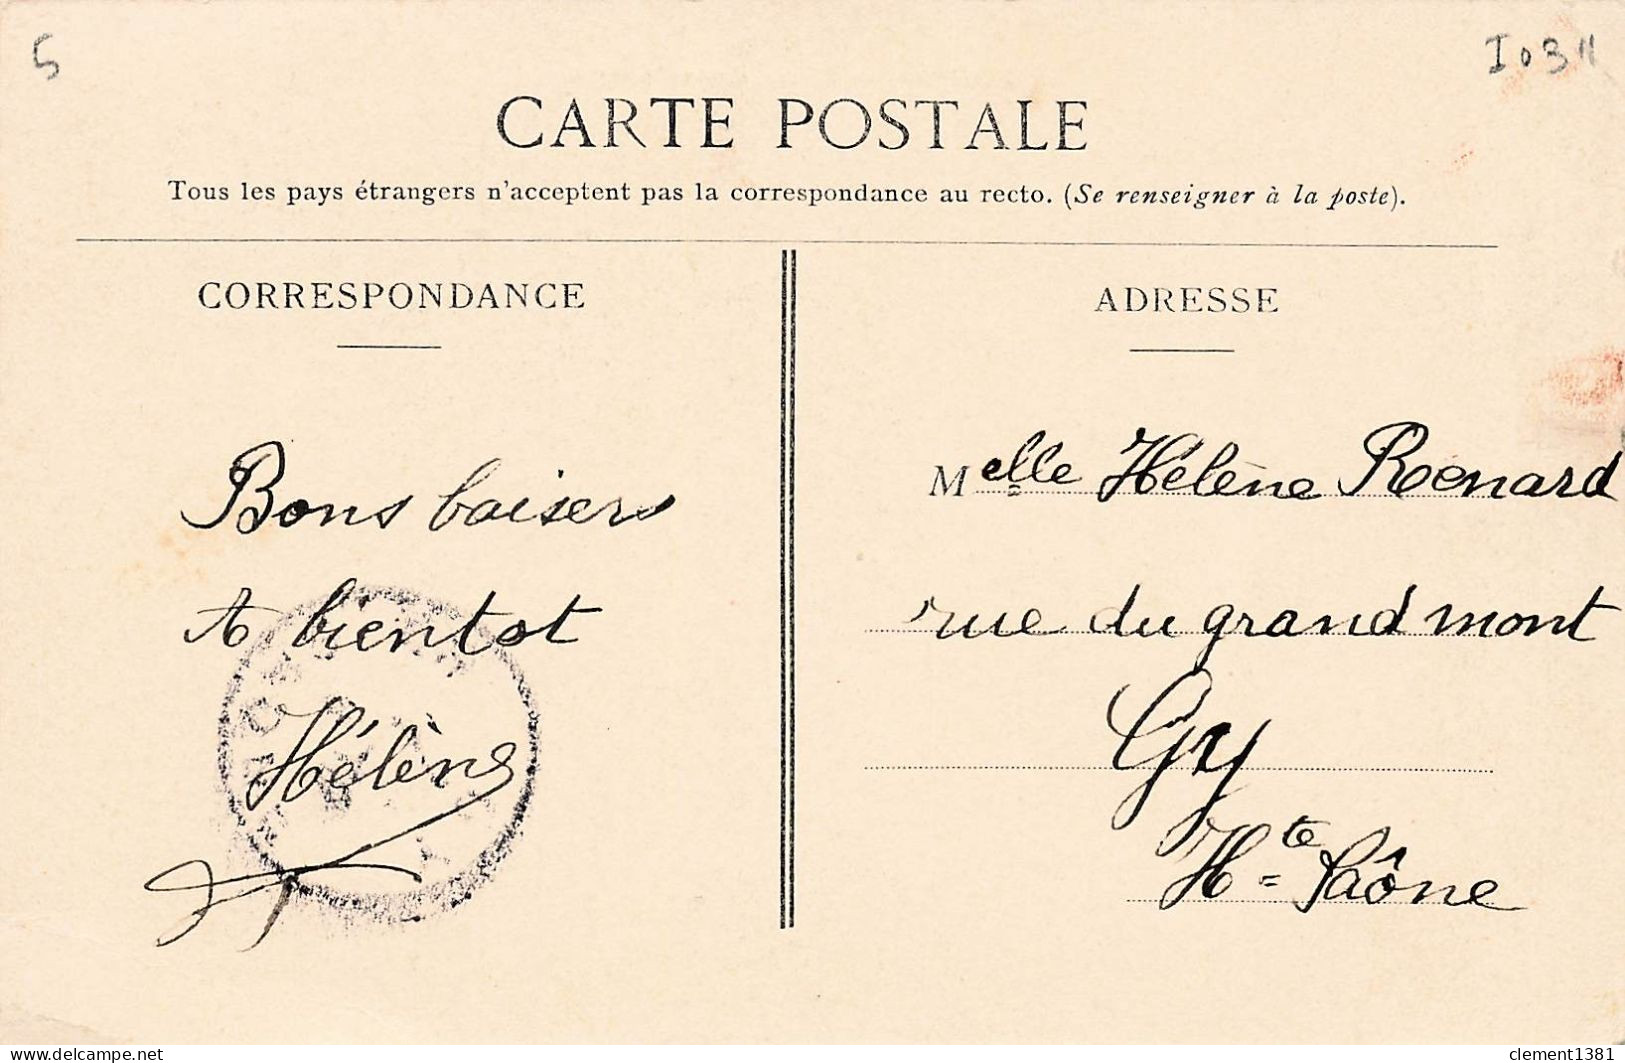 5
CARTE POSTALE
Tous les pays étrangers n'acceptent pas la correspondance au recto. (Se renseigner à la poste).
CORRESPONDANCE
Bons baisers
A bientot
Hélène
ADRESSE
Melle Hélène Renard
rue du grand mont
Gy
Hte Saône
delcampe.net
clement1381